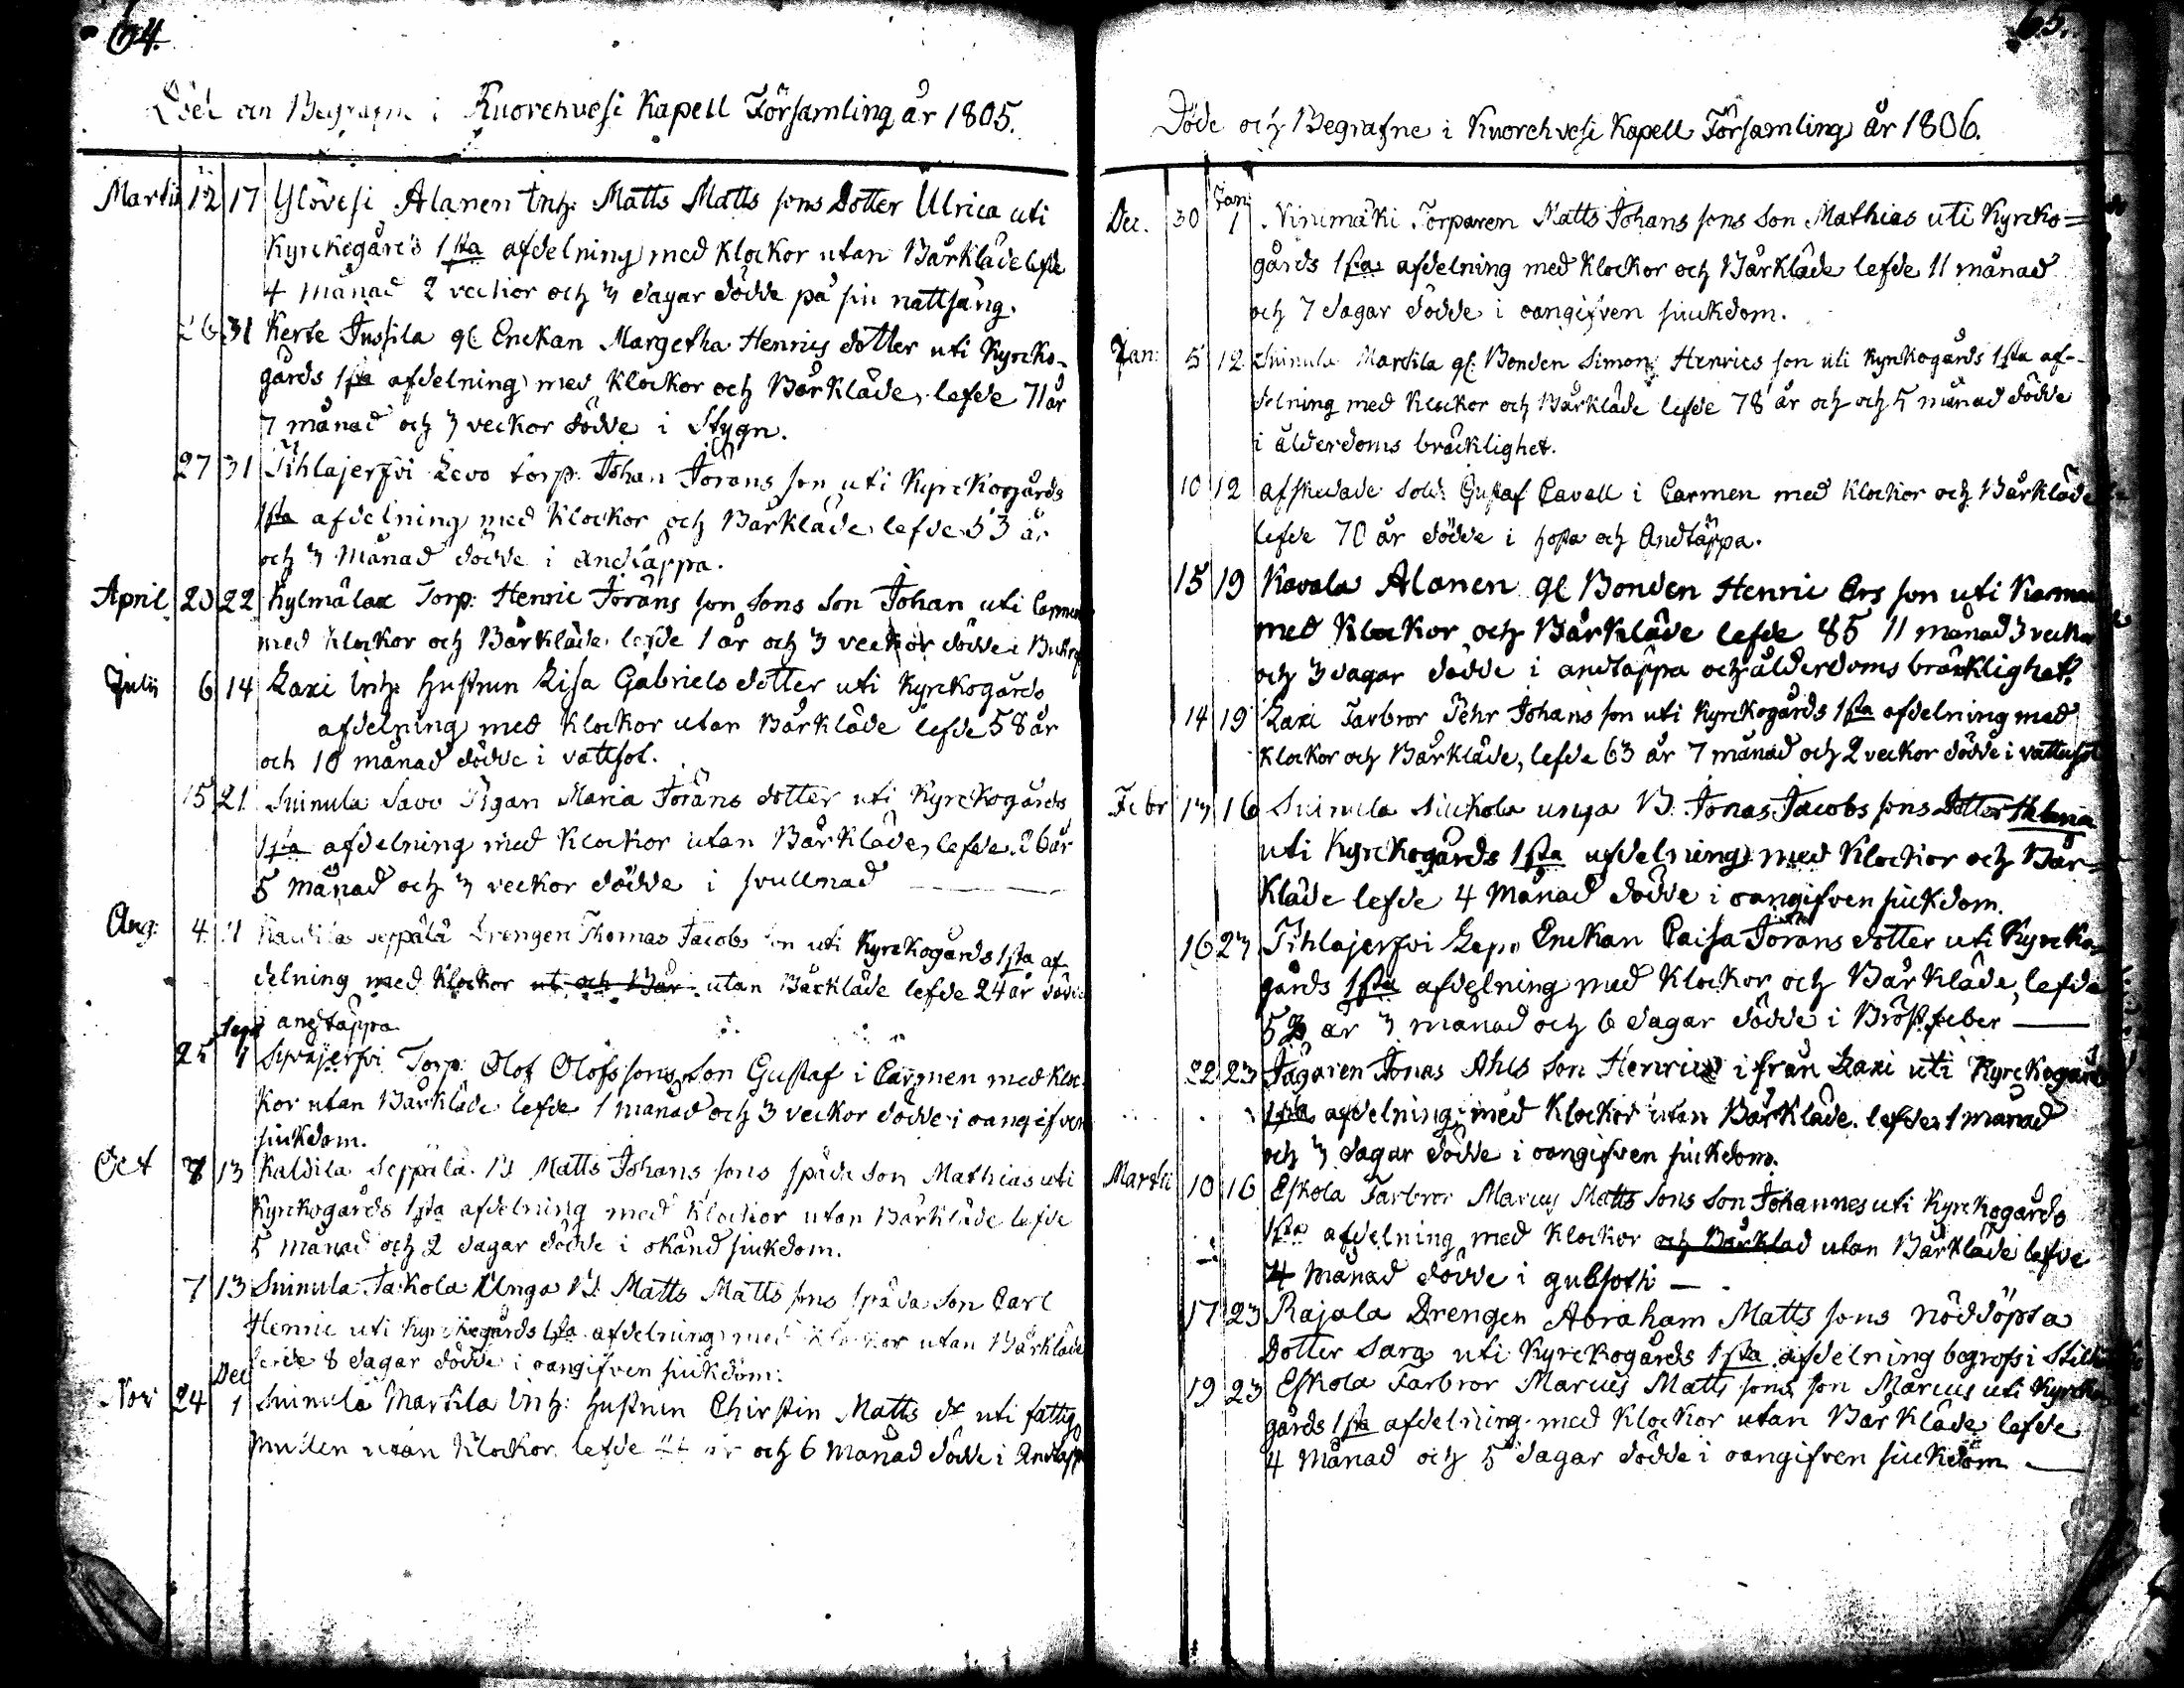 64.
Döde och Begrafne i Kuorehvesi Kapell Församling år 1805.
Martii 12 17 Ylövesi Alanen Inh: Matts Matts sons Dotter Ulrica uti
Kyrckogårds 1sta afdelning med Klockor utan Bårkläde lefde
4 månad 2 veckor och 3 dagar dödde på sin nattsäng.
26 31 Kerte Jussila gl: Enckan Margetha Henrics dotter uti Kyrcko-
gårds 1sta afdelning med Klockor och Bårkläde, lefde 71 år
7 månad och 3 veckor dödde i Stygn.
27 31 Tihlajerfvi Levo torp: Johan Jörans son uti Kyrckogårds
1sta afdelning med Klockor och Bårkläde lefde 53 år
och 3 Månad dödde i andtäppa.
April 20 22 Kylmälax Torp: Henric Jörans son sons Son Johan uti Carmen
med Klockor och Bårkläde lefde 1 år och 3 veckor dödde i
Julii 6 14 Laxi Inh: hustrun Lisa Gabriels dotter uti Kyrckogårds
afdelning med Klockor utan Bårkläde lefde 58 år
och 10 månad dödde i vattsot.
15 21 Suinula Savo Pigan Maria Jörans dotter uti Kyrckogårds
1sta afdelning med Klockor utan Bårkläde, lefde 26 år
5 Månad och 3 veckor dödde i svullnad
Aug: 4 11 Kaldila Seppälä Drengen Thomas Jacobs son uti Kyrckogårds 1sta af
delning med Klockor ut och Bår utan Bårkläde lefde 24 år dödde
i andtäppa
Sept
25 1 Syväjerfvi Torp: Olof Olofs sons Son Gustaf i Carmen med Kloc-
kor utan Bårkläde lefde 1 månad och 3 veckor dödde i oangifven
siukdom.
Oct 7 13 Kaldila Seppälä B: Matts Johans sons späda Son Mathias uti
Kyrckogårds 1sta afdelning med Klockor utan Bårkläde lefde
5 månad och 2 dagar dödde i okänd siukdom.
7 13 Suinula Jackola Unga B: Matts Matts sons späda Son Carl
Henric uti Kyrckogårds 1sta afdelning med Klockor utan Bårkläde
lefde 8 dagar dödde i oangifven siukdom.
Dec
Nov 24 1 Suinula Martila Inh: hustrun Chirstin Matts dr uti fattig
mullen utan Klockor lefde år och 6 Månad dödde i Andtäpp
65.
Döde och Begrafne i Kuorehvesi Kapell Församling år 1806.
Jan
Dec. 30 1 Ninimäki Torparen Matts Johans sons Son Mathias uti Kyrcko=
gårds 1sta afdelning med Klockor och Bårkläde lefde 11 månad
och 7 dagar dödde i oangifven siukdom.
Jan: 5 12 Suinula Martila gl: Bonden Simon Henrics son uti Kyrckogårds 1sta af-
delning med Klockor och Bårkläde lefde 78 år och och 5 månad dödde
i ålderdoms bräcklighet.
10 12 afskedade Sold: Gustaf Cavall i Carmen med Klockor och Bårkläde
lefde 70 år dödde i hosta och Andtäppa.
15 19 Kavala Alanen gl Bonden Henric Ers son uti Karmen
med Klockor och Bårkläde lefde 85 11 månad 3 veckor
och 3 dagar dödde i andtäppa och ålderdoms bräcklighet.
14 19 Laxi Farbror Pehr Johans son uti Kyrckogårds 1sta afdelning med
Klockor och Bårkläde, lefde 63 år 7 månad och 2 veckor dödde i vattusot
Febr 13 16 Suinula Siuckola unga B: Jonas Jacobs sons Dotter Helena
uti Kyrckogårds 1sta afdelning med Klockor och Bår-
kläde lefde 4 Månad dödde i oangifven siukdom.
16 23 Tihlajerfvi Lepo Enckan Caisa Jörans dotter uti Kyrcko-
gårds 1sta afdelning med Klockor och Bårkläde, lefde
53 år 3 månad och 6 dagar dödde i Bröstfeber
22 23 Jägaren Jonas Ahls Son Henric ifrån Laxi uti Kyrckogårds
1sta afdelning med Klockor utan Bårkläde lefde 1 månad
och 3 dagar dödde i oangifven siukdom.
Martii 10 16 Eskola Farbror Marcus Matts sons Son Johannes uti Kyrckogårds
1sta afdelning med Klockor och Bårkläd utan Bårkläde lefde
4 Månad dödde i gulsoth
17 23 Rajala Drengen Abraham Matts sons nöddöpta
Dotter Sara uti Kyrckogårds 1sta afdelning begrofs i Stillhe
19 23 Eskola Farbror Marcus Matts sons son Marcus uti Kyrcko
gårds 1sta afdelning med Klockor utan Bårkläde lefde
4 Månad och 5 dagar dödde i oangifven siukdom